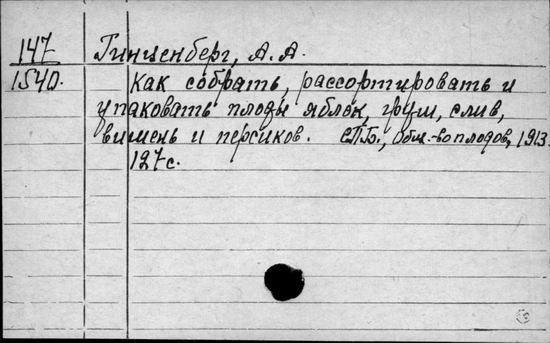 147 Гинценберг, А. А.
1540. Как собрать, рассортировать и
упаковать плоды яблок, груш, слив,
вишень и персиков. СПБ., Общ-во плодов, 1913.
127 с.